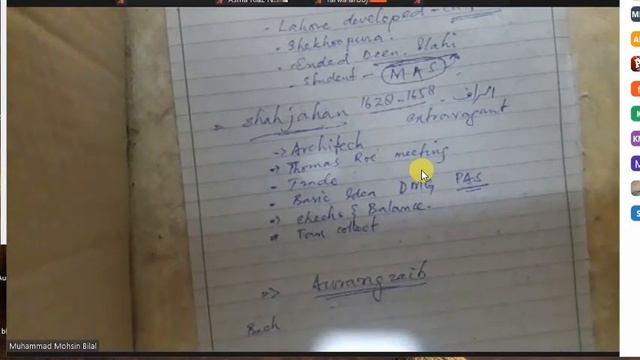 - Lahore developed -
- Shekhoopura.
- Ended Deen Ilahi
- Student - MAS
→ Shahjahan 1628-1658 اسراف -
extravagant
→ Architech
→ Thomas Roe meeting
- Trade
- Basic Idea DMG PAS
→ checks & Balance.
* Tax collect
=> Aurangzaib
Bach
Muhammad Mohsin Bilal